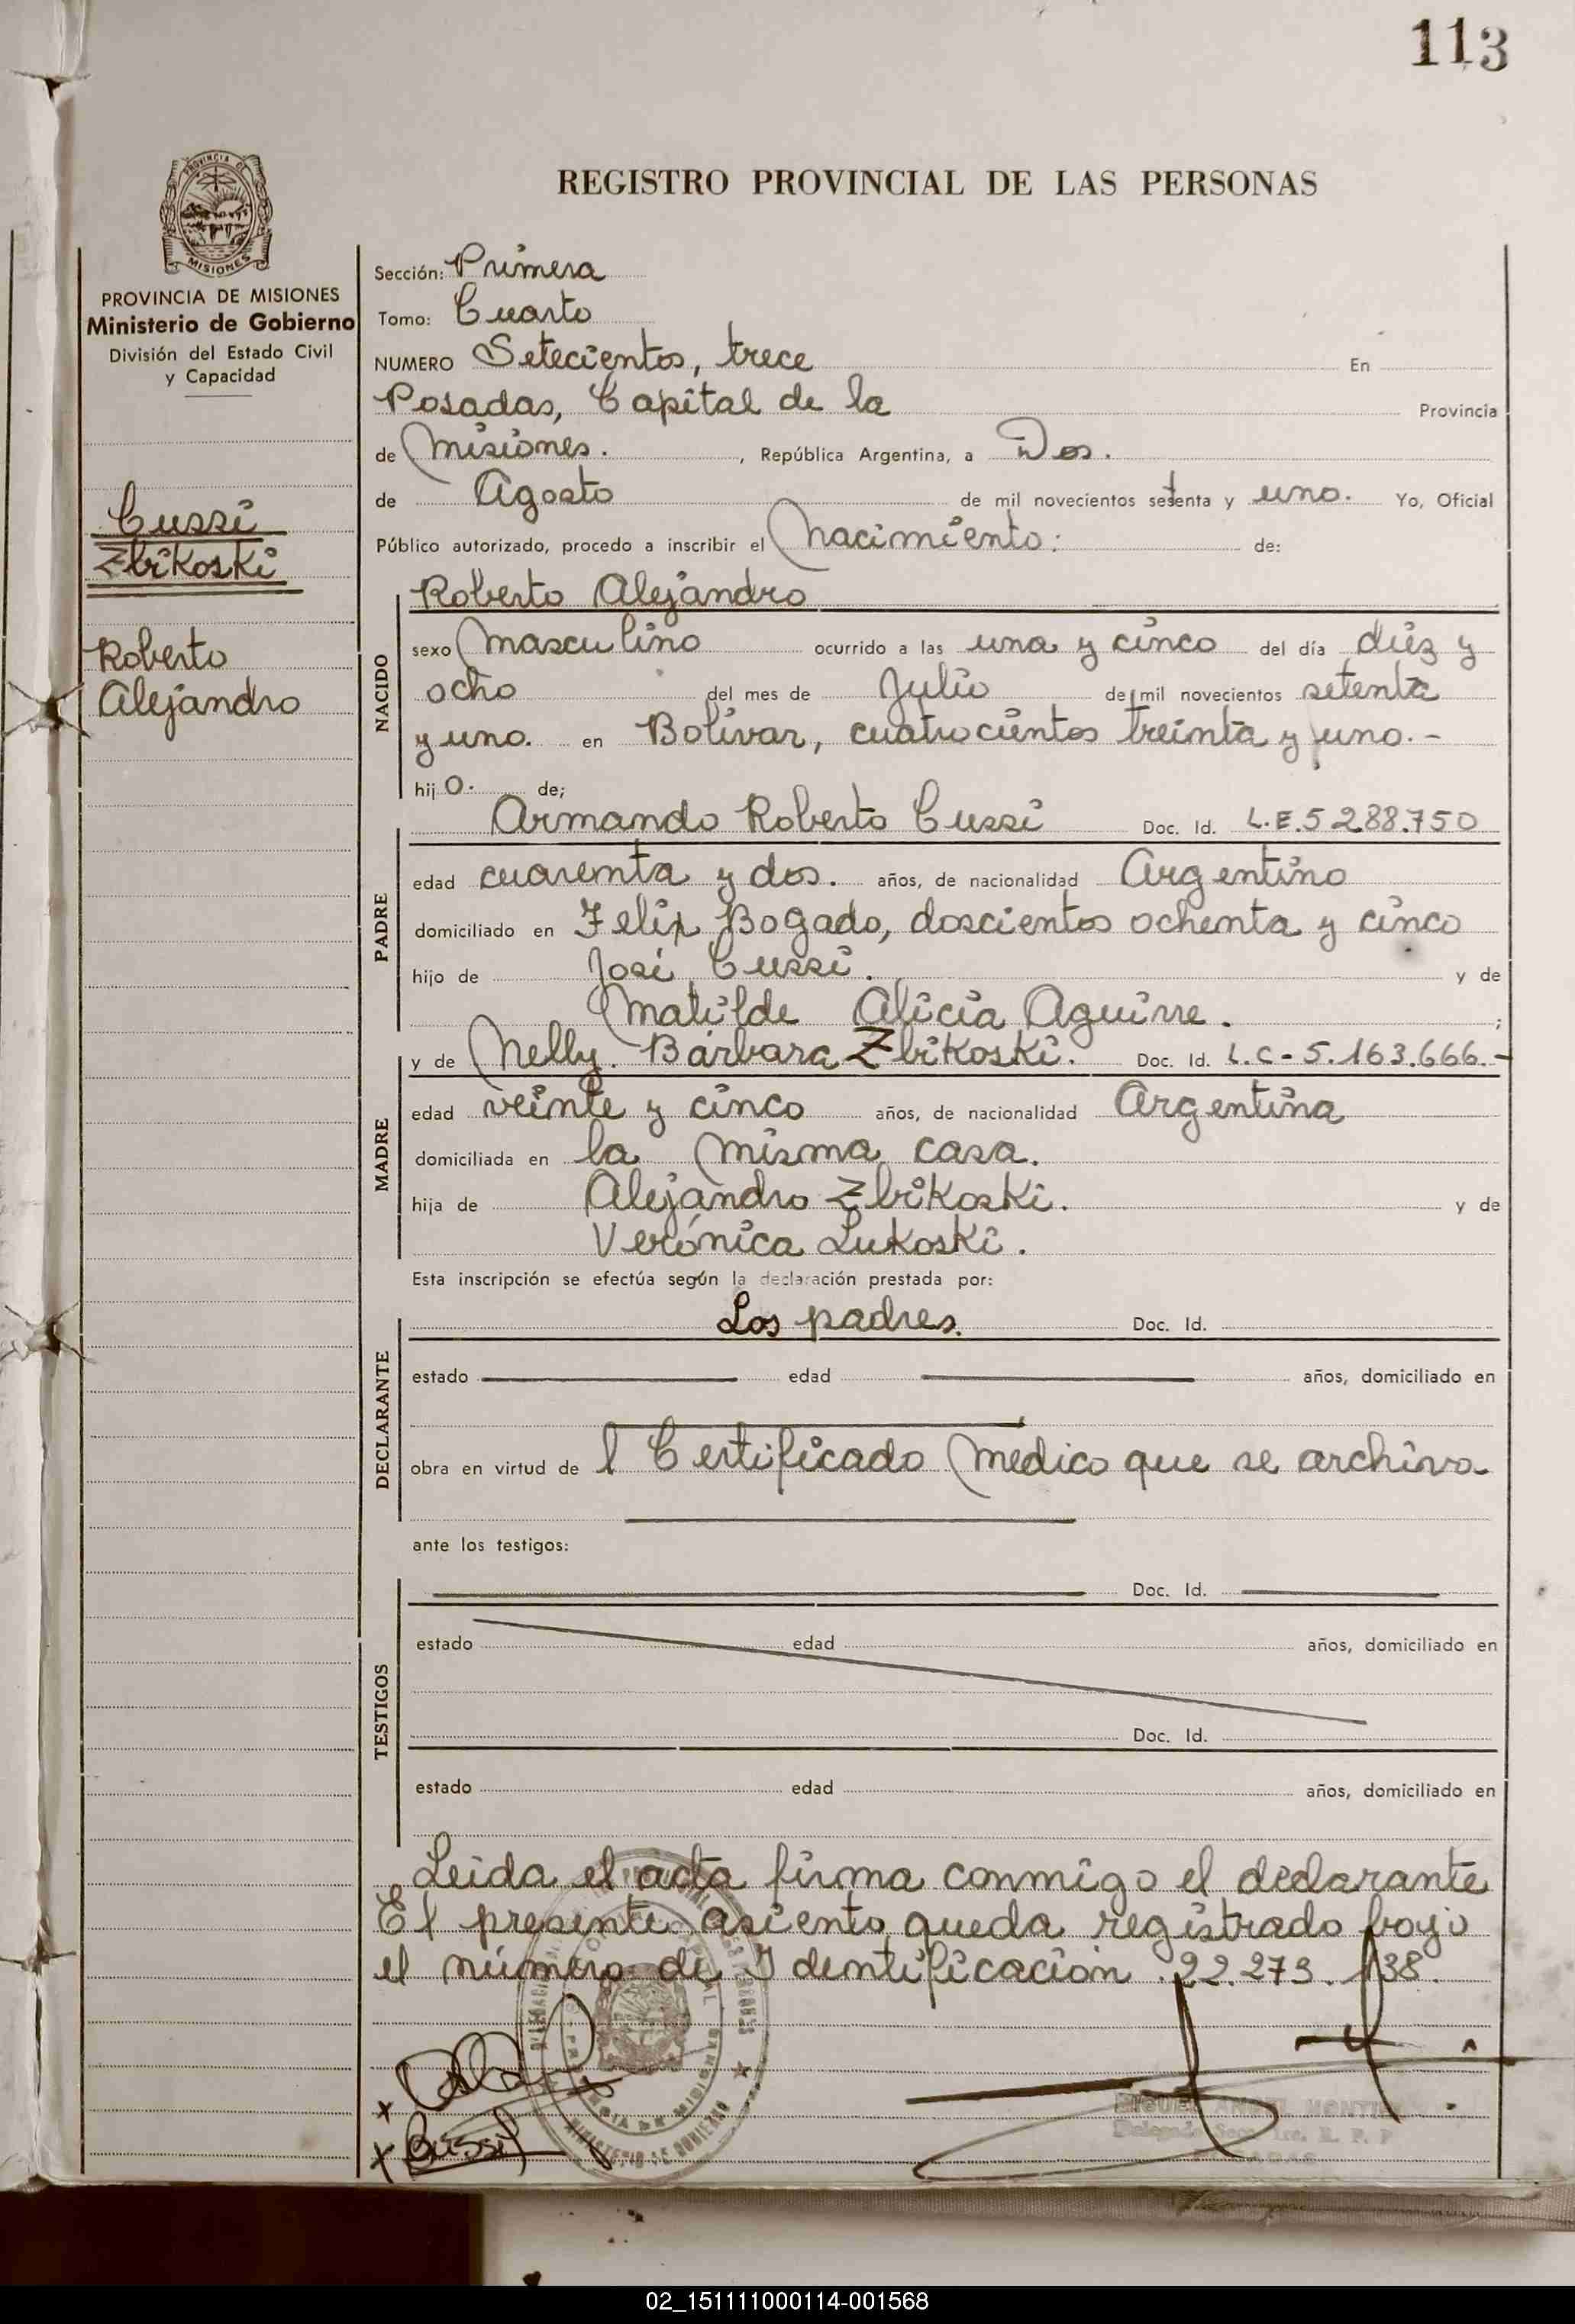 113
PROVINCIA DE
MISIONES
PROVINCIA DE MISIONES
Ministerio de Gobierno
División del Estado Civil
y Capacidad
Cussi
Zbikoski
Roberto
Alejandro
REGISTRO PROVINCIAL DE LAS PERSONAS
Sección: Primera
Tomo: Cuarto
NUMERO Setecientos, trece En
Posadas, Capital de la Provincia
de Misiones. , República Argentina, a Dos.
de Agosto de mil novecientos setenta y uno. Yo, Oficial
Público autorizado, procedo a inscribir el Nacimiento: de:
NACIDO
Roberto Alejandro
sexo Masculino ocurrido a las una y cinco del día diez y
ocho del mes de Julio de mil novecientos setenta
y uno. en Bolívar, cuatrocientos treinta y uno.-
hij o. de;
PADRE
Armando Roberto Cussi Doc. Id. L.E.5288.750
edad cuarenta y dos. años, de nacionalidad Argentino
domiciliado en Felix Bogado, doscientos ochenta y cinco
hijo de José Cussi. y de
Matilde Alicia Aguirre. ;
MADRE
y de Nelly Bárbara Zbikoski. Doc. Id. L.C-5.163.666.-
edad veinte y cinco años, de nacionalidad Argentina
domiciliada en la misma casa.
hija de Alejandro Zbikoski. y de
Verónica Lukoski.
Esta inscripción se efectúa según la declaración prestada por:
DECLARANTE
Los padres. Doc. Id.
estado edad años, domiciliado en
obra en virtud de l Certificado Medico que se archiva
ante los testigos:
TESTIGOS
Doc. Id.
estado edad años, domiciliado en
Doc. Id.
estado edad años, domiciliado en
Leida el acta firma conmigo el declarante
El presente asiento queda registrado bajo
el número de Identificación 22.273.138.
x
x Cussi
MIGUEL ANGEL MONTIEL
Delegado Secc. 1ra. R. P. P
MINISTERIO DE GOBIERNO
02_151111000114-001568